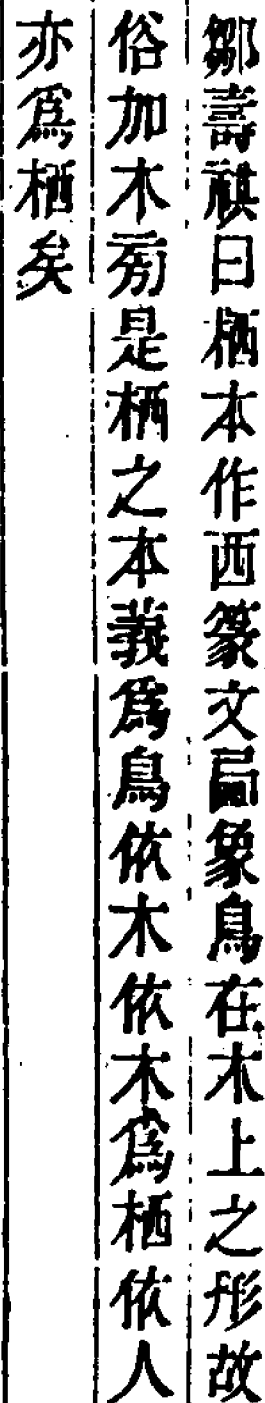 鄒壽祺曰栖本作西篆文㢴象鳥在木上之形故
俗加木旁是栖之本義爲鳥依木依木爲栖依人
亦爲栖矣